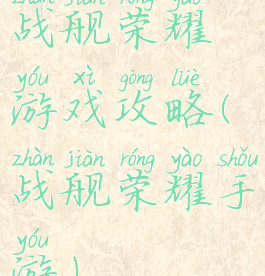 zhàn jiàn róng yào
战舰荣耀
yóu xì gōng lüè
游戏攻略(
zhàn jiàn róng yào shǒu
战舰荣耀手
yóu
游)